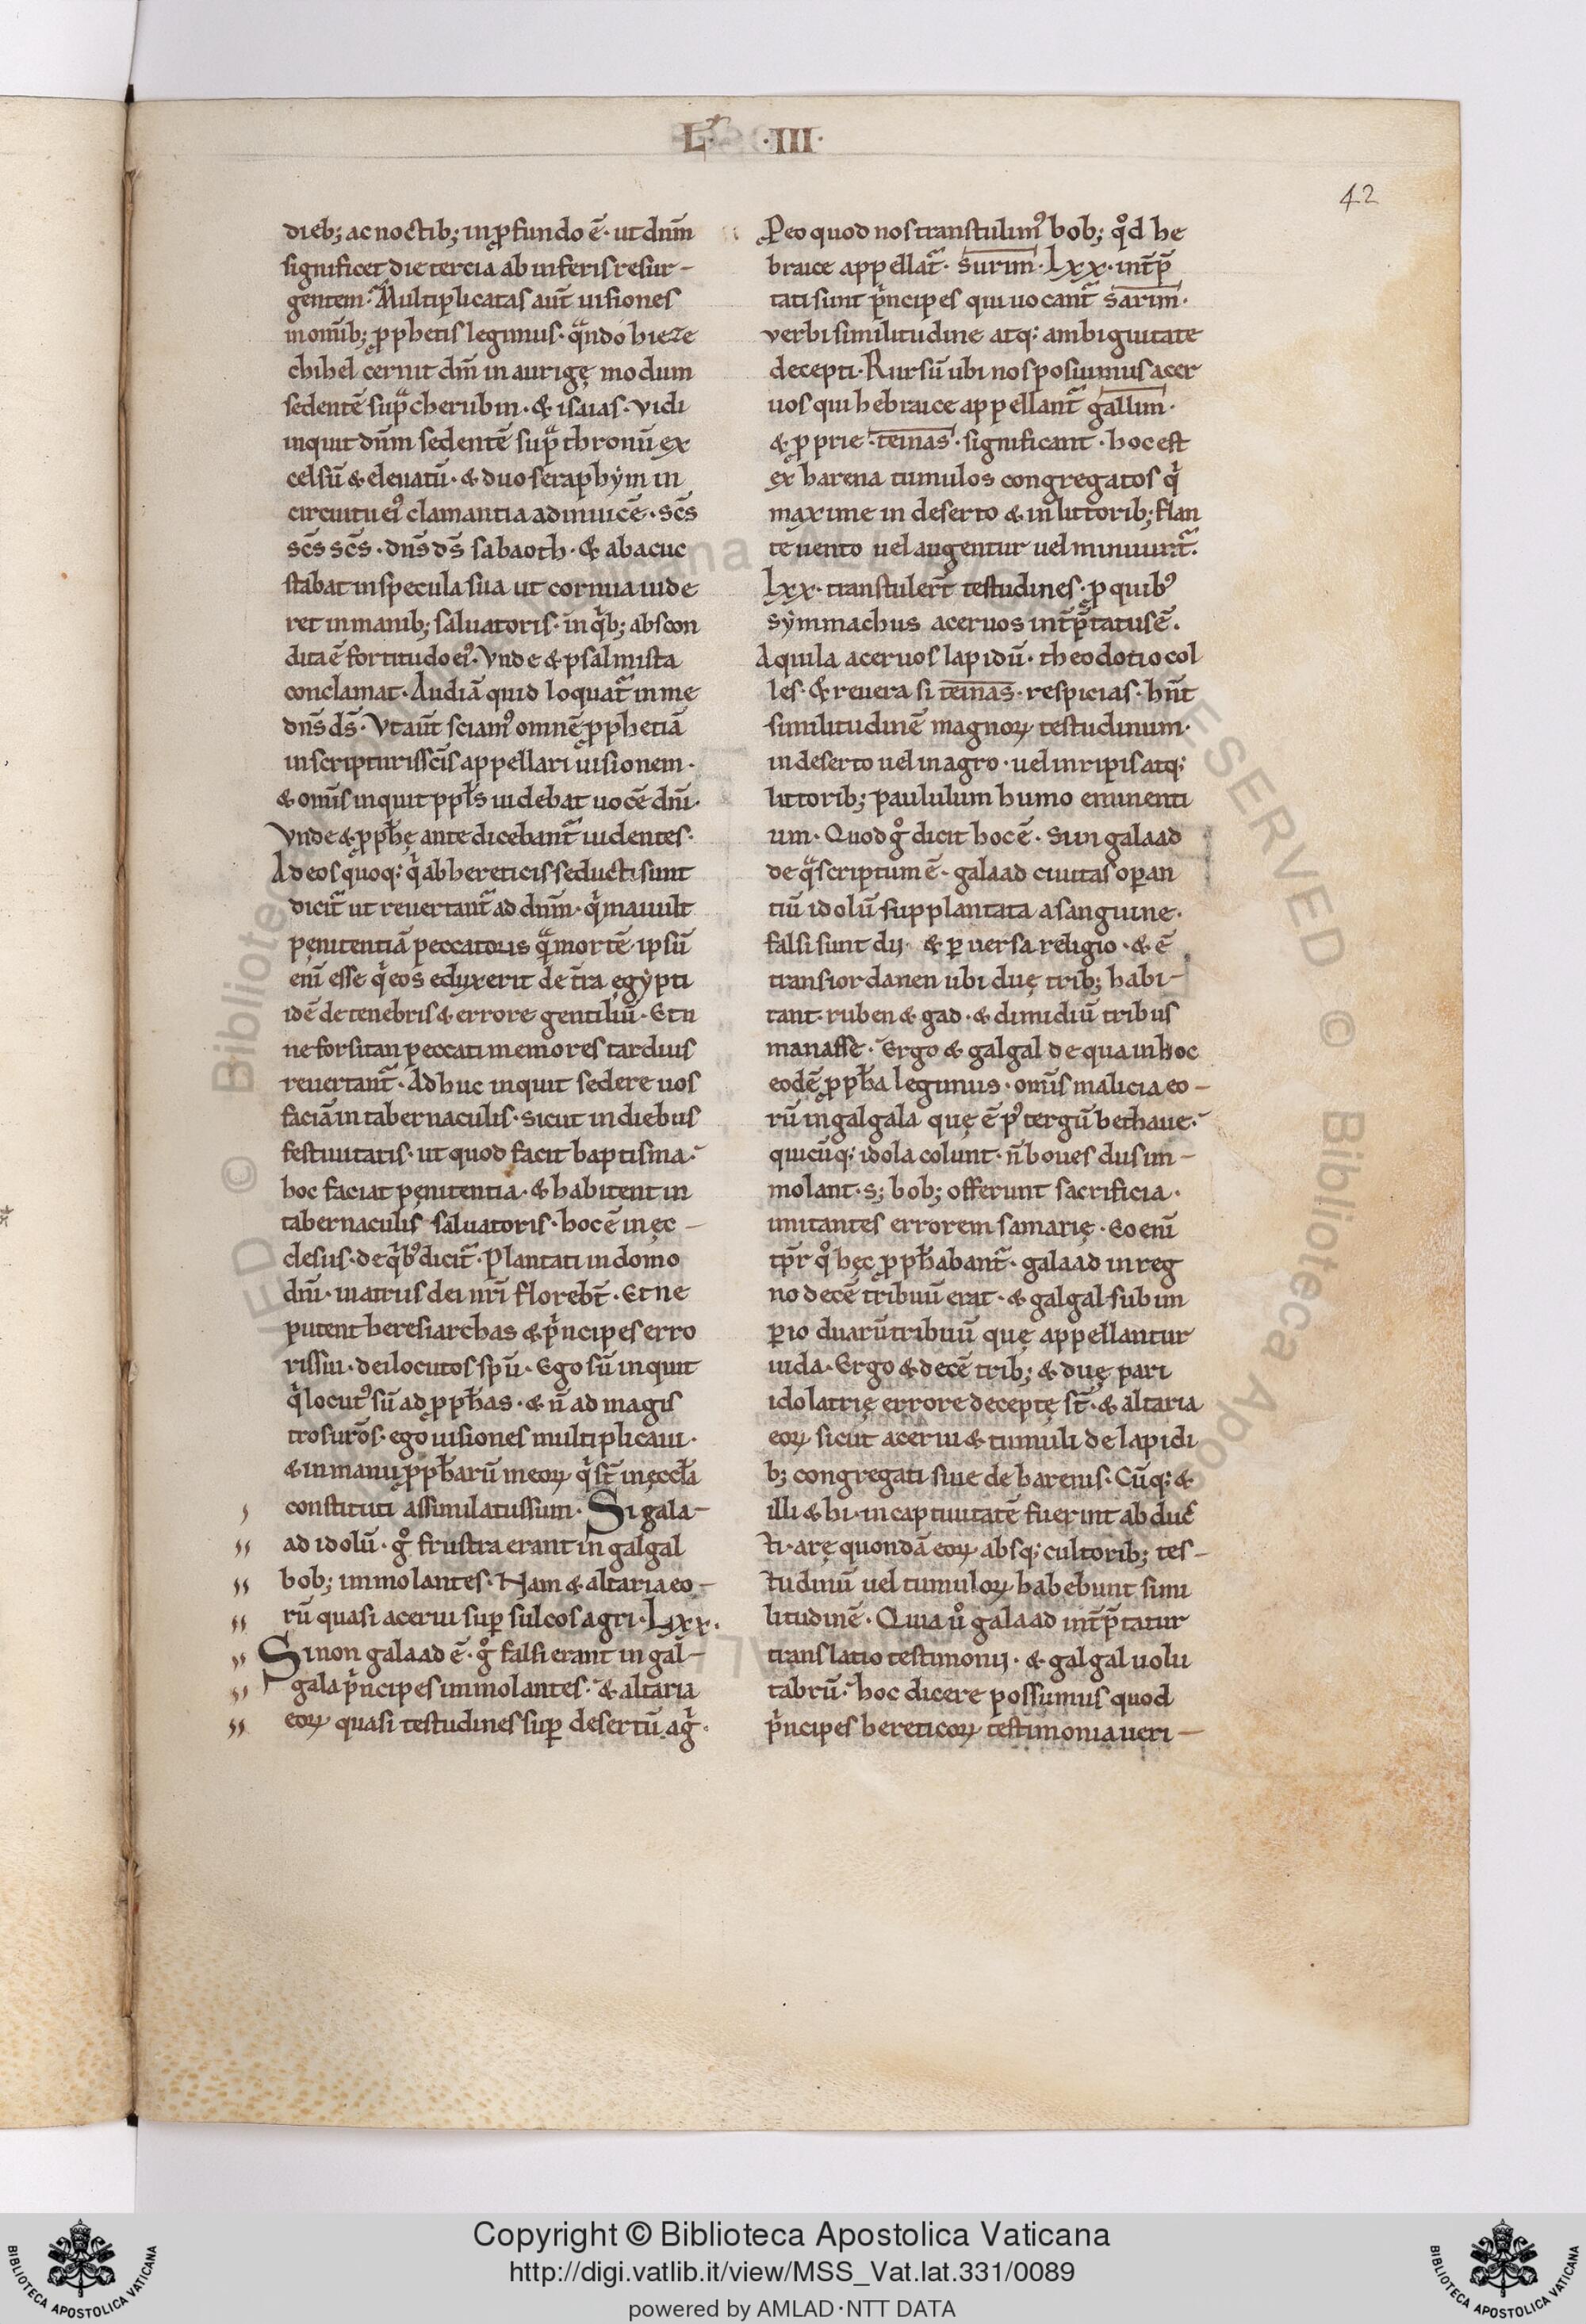 L · III ·
42
dieb; ac noctib; in ꝓfundo ē · ut dnm̄
significet die tercia ab inferis resur-
gentem · Multiplicatas aut̄ uisiones
in omīb; ꝓphetis legimus · qͣndo hieze
chihel cernit dm̄ in aurigę modum
sedentē sup̄ cherubin · & isaias · Vidi
inquit dnm̄ sedentē supͣ thronū ex
celsū & eleuatū · & duo seraphẏm in
circuitu eiꝰ clamantia ad inuicē · scs̄
scs̄ scs̄ · dns̄ ds̄ sabaoth · & abacuc
stabat in specula sua ut cornua uide
ret in manib; saluatoris · in qͥb; abscon
dita ē fortitudo eiꝰ · Vnde & psalmista
conclamat · Audiā quid loquat᷑ in me
dns̄ ds̄ · Vt aut̄ sciamꝰ omnē ꝓphetiā
in scripturis scīs appellari uisionem ·
& omīs inquit ppłs uidebat uocē dnī ·
Vnde & ꝓph̄ę ante dicebant᷑ uidentes ·
Ad eos quoq; qͥ ab hereticis seducti sunt
dicit᷑ ut reuertant᷑ ad dnm̄ · qͥ mauult
pęnitentiā peccatoris qͣ mortē · ipsū
enī esse qͥ eos eduxerit de tr̄a ęgẏpti
idē de tenebris & errore gentiliū · Et n̄
ne forsitan peccati memores tardius
reuertant᷑ · Adhuc inquit sedere uos
faciā in tabernaculis · sicut in diebus
festiuitatis · ut quod facit baptisma ·
hoc faciat pęnitentia · & habitent in
tabernaculis saluatoris · hoc ē in ęc-
clesiis · de qͥbꝰ dicit᷑ · Plantati in domo
dnī · in atriis dei nr̄i florebt̄ · Et ne
putent heresiarchas & pͥncipes erro
ris sui · dei locutos sp̄u · Ego sū inquit
qͥ locutꝰ sū ad ꝓph̄as · & n̄ ad magis
tros ur̄os · ego uisiones multiplicaui ·
& in manu ꝓph̄arū meoꝝ qͥ st̄ in ęccła
constituti assimilatus sum · Si gala-
ad idolū · gͦ frustra erant in galgal
bob; immolantes · Nam & altaria eo-
rū quasi acerui suꝑ sulcos agri · Lxx ·
Si non galaad ē · gͦ falsi erant in gal-
gala pͥncipes immolantes · & altaria
eoꝝ quasi testudines suꝑ desertū agͥ ·
P eo quod nos transtulimꝰ bob; qͦd he
braice appellat᷑ · surim · Lxx · int̄p̄
tati sunt pͥncipes qui uocant᷑ sarim ·
verbi similitudine atq; ambiguitate
decepti · Rursū ubi nos posuimus acer
uos qui hebraice appellant᷑ gallim ·
& ꝓprie · teinas · significant · hoc est
ex harena tumulos congregatos qͥ
maxime in deserto & in littorib; flan
te uento uel augentur uel minuunt᷑ ·
Lxx · transtuler̄t testudines · ꝓ quibꝰ
sẏmmachus aceruos int̄p̄tatus ē ·
Aquila aceruos lapidū · theodotio col
les · & reuera si teinas · respicias · hn̄t
similitudinē magnoꝝ testudinum ·
in deserto uel in agro · uel in ripis atq;
littorib; paululum humo eminenti
um · Quod gͦ dicit hoc ē · Si in galaad
de qͣ scriptum ē · galaad ciuitas oꝑan
tiū idolū supplantata a sanguine ·
falsi sunt dij · & ꝑuersa religio · & ē
trans iordanen ubi duę trib; habi-
tant · ruben & gad · & dimidiū tribus
manasse · Ergo & galgal de qua in hoc
eodē ꝓph̄a legimus · omīs malicia eo-
rū in galgala quę ē pꝰ tergū bethaue ·
quicūq; idola colunt · n̄ boues diis im-
molant · s; bob; offerunt sacrificia ·
imitantes errorem samarię · Eo enī
tp̄r qͦ hęc ꝓph̄abant᷑ · galaad in reg
no decē tribuū erat · & galgal sub im
ꝑio duarū tribuū quę appellantur
iuda · Ergo & decē trib; & duę pari
idolatrię errore deceptę st̄ · & altaria
eoꝝ sicut acerui & tumuli de lapidi
b; congregati siue de harenis · Cūq; &
illi & hi · in captiuitatē fuerint abduc
ti · arę quondā eoꝝ absq; cultorib; tes-
tudinū uel tumuloꝝ habebunt simi
litudinē · Quia uͦ galaad int̄p̄tatur
translatio testimonij · & galgal uolu
tabrū · hoc dicere possumus quod
pͥncipes hereticoꝝ testimonia ueri-
Copyright © Biblioteca Apostolica Vaticana
http://digi.vatlib.it/view/MSS_Vat.lat.331/0089
powered by AMLAD·NTT DATA
BIBLIOTECA APOSTOLICA VATICANA
BIBLIOTECA APOSTOLICA VATICANA